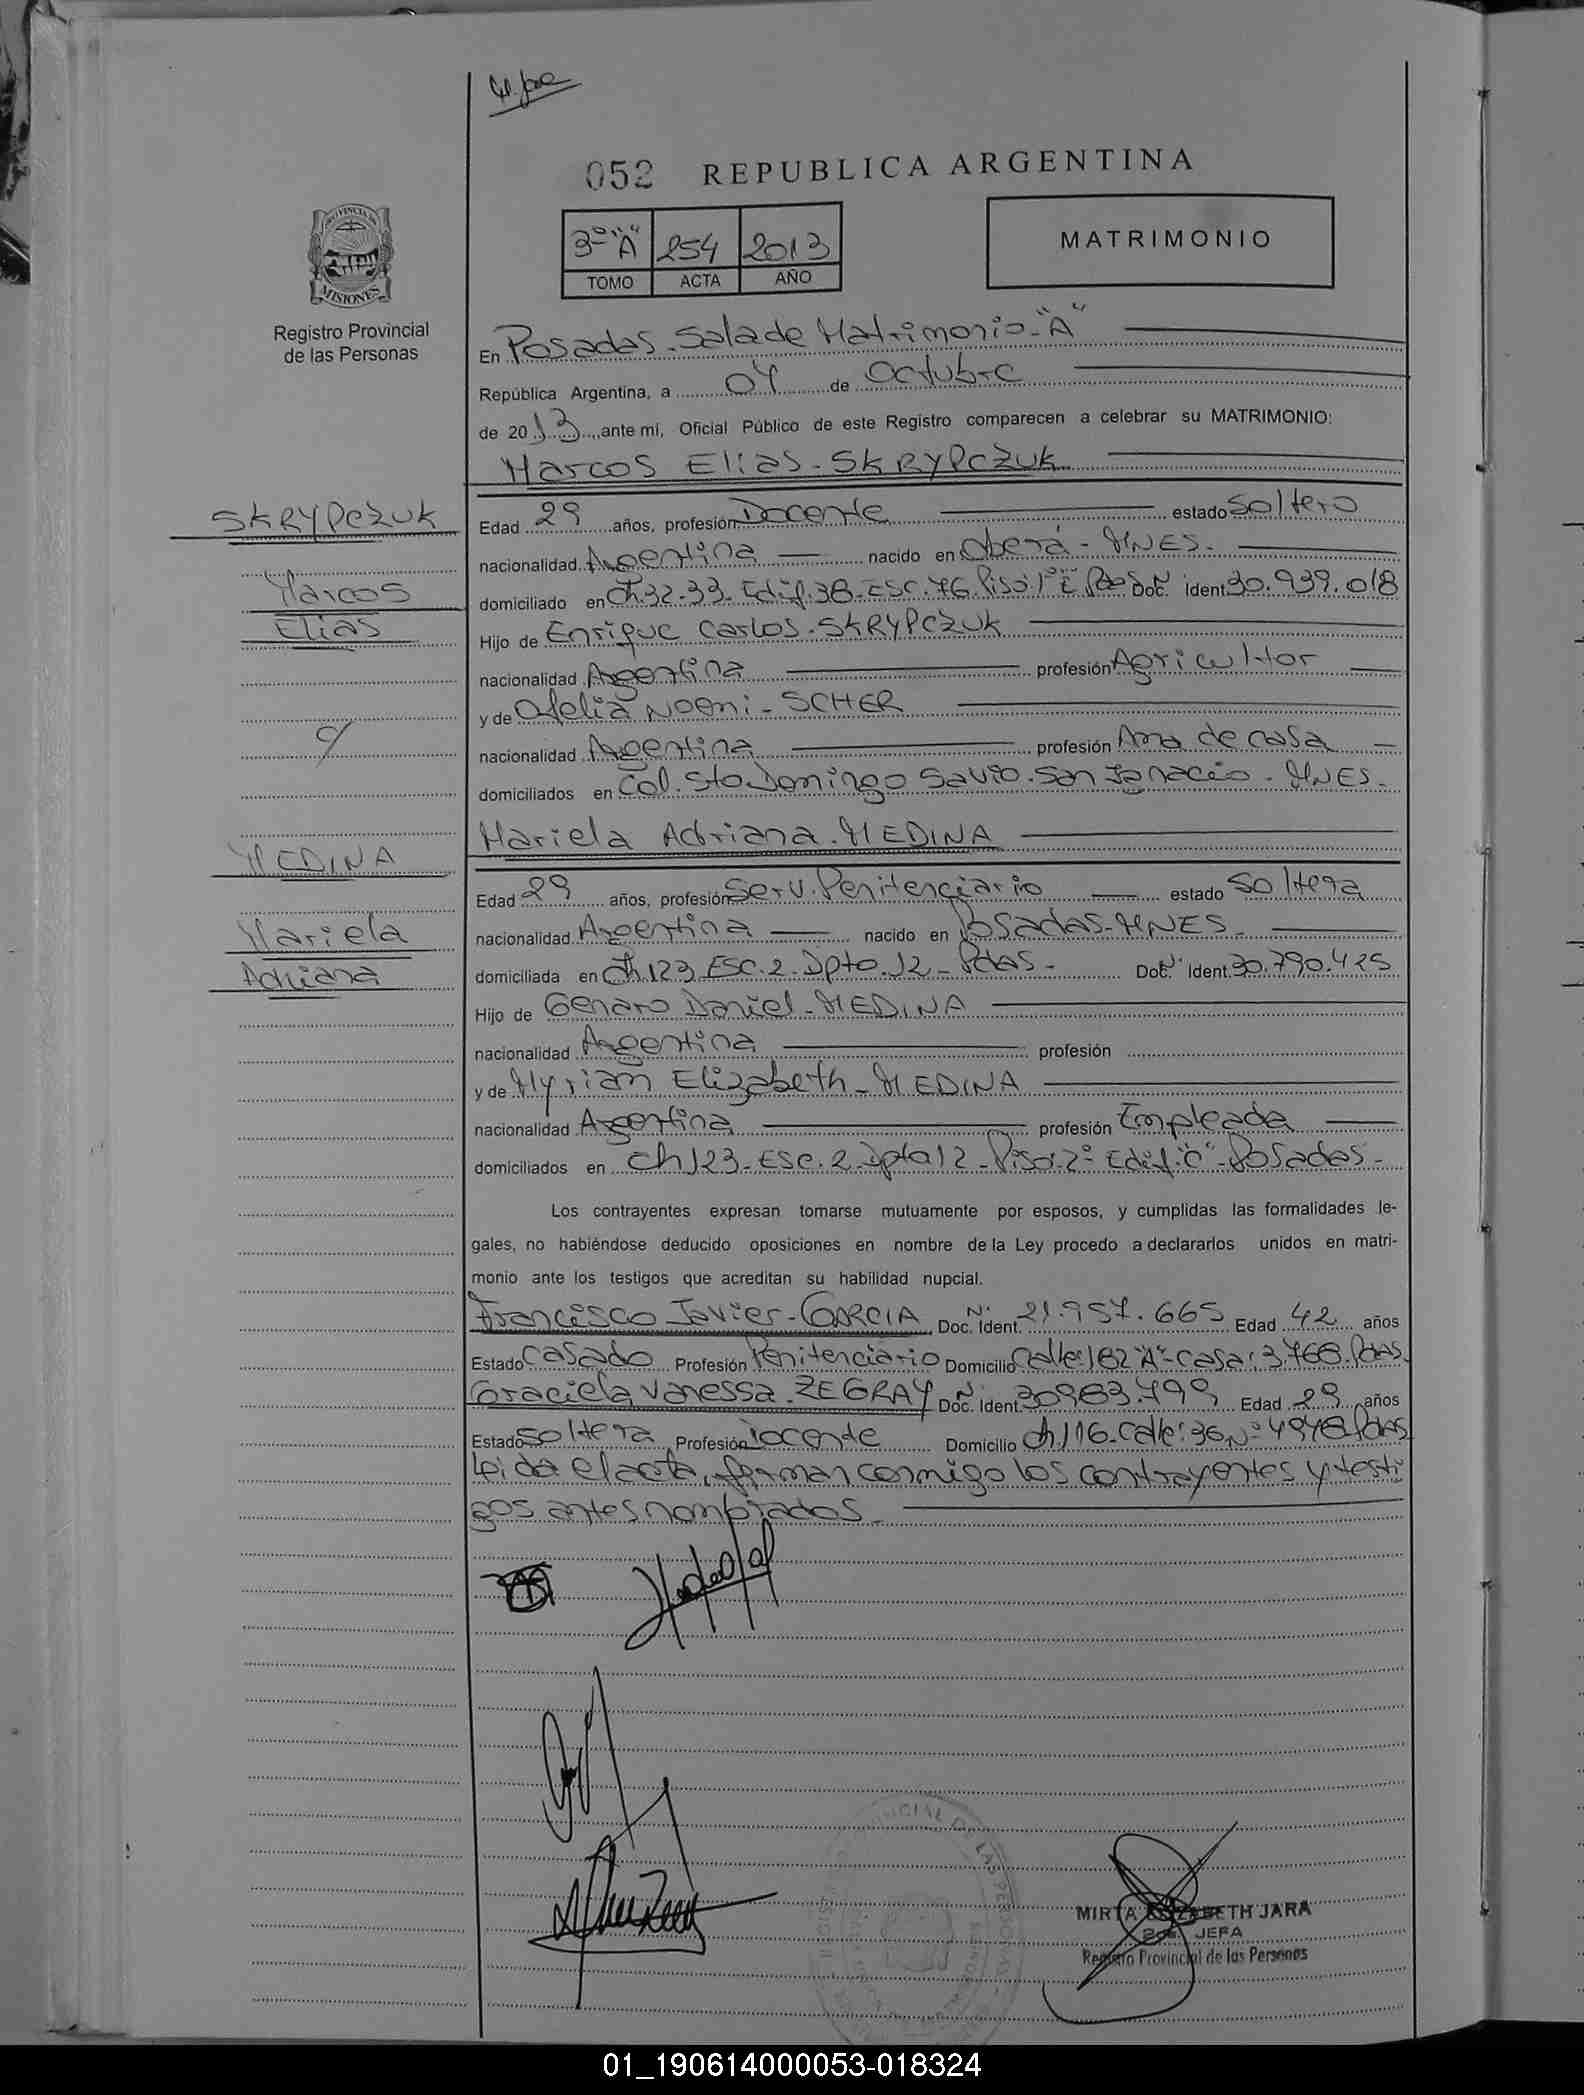 052 REPUBLICA ARGENTINA
3º "A" 254 2013
TOMO ACTA AÑO
MATRIMONIO
PROVINCIA DE
MISIONES
Registro Provincial
de las Personas
En Posadas. Sala de Matrimonio-"A"
República Argentina, a 04 de Octubre
de 2013, ante mí, Oficial Público de este Registro comparecen a celebrar su MATRIMONIO:
Marcos Elias. SKRYPCZUK
SKRYPCZUK
Marcos
Elias
c/
MEDINA
Mariela
Adriana
Edad 29 años, profesión Docente estado Soltero
nacionalidad Argentina nacido en Oberá - MNES.
domiciliado en Ch.32-33. Edif.38-ESC.76.Piso:1º"E" Pdas Nº Doc. Ident 30.939.018
Hijo de Enrique Carlos. SKRYPCZUK
nacionalidad Argentina profesión Agricultor
y de Ofelia Noemi - SCHER
nacionalidad Argentina profesión Ama de casa
domiciliados en Col. Sto Domingo Savio. San Ignacio - MNES.
Mariela Adriana. MEDINA
Edad 29 años, profesión Serv. Penitenciario estado Soltera
nacionalidad Argentina nacido en Posadas-MNES.
domiciliada en Ch.123.ESC.2.Dpto.12 - Pdas - Nº Doc. Ident. 30.790.425
Hijo de Genaro Daniel. MEDINA
nacionalidad Argentina profesión
y de Myriam Elizabeth - MEDINA
nacionalidad Argentina profesión Empleada
domiciliados en Ch 123-ESC.2.Dpto 12-Piso:2º Edif."C"-Posadas-
Los contrayentes expresan tomarse mutuamente por esposos, y cumplidas las formalidades le-
gales, no habiéndose deducido oposiciones en nombre de la Ley procedo a declararlos unidos en matri-
monio ante los testigos que acreditan su habilidad nupcial.
Francisco Javier - GARCIA Nº Doc. Ident. 21.957.665 Edad 42 años
Estado Casado Profesión Penitenciario Domicilio Calle:162"A"-Casa:3.768.Pdas.
Graciela Vanessa. ZEGRAY Nº Doc. Ident. 30963.499 Edad 29 años
Estado Soltera Profesión Docente Domicilio Ch.116-Calle:36 Nº 4948 Pdas
Leida el acta, firman conmigo los contrayentes y testi-
gos antes nombrados.
MIRTA ELIZABETH JARA
2da. JEFA
Registro Provincial de las Personas
01_190614000053-018324